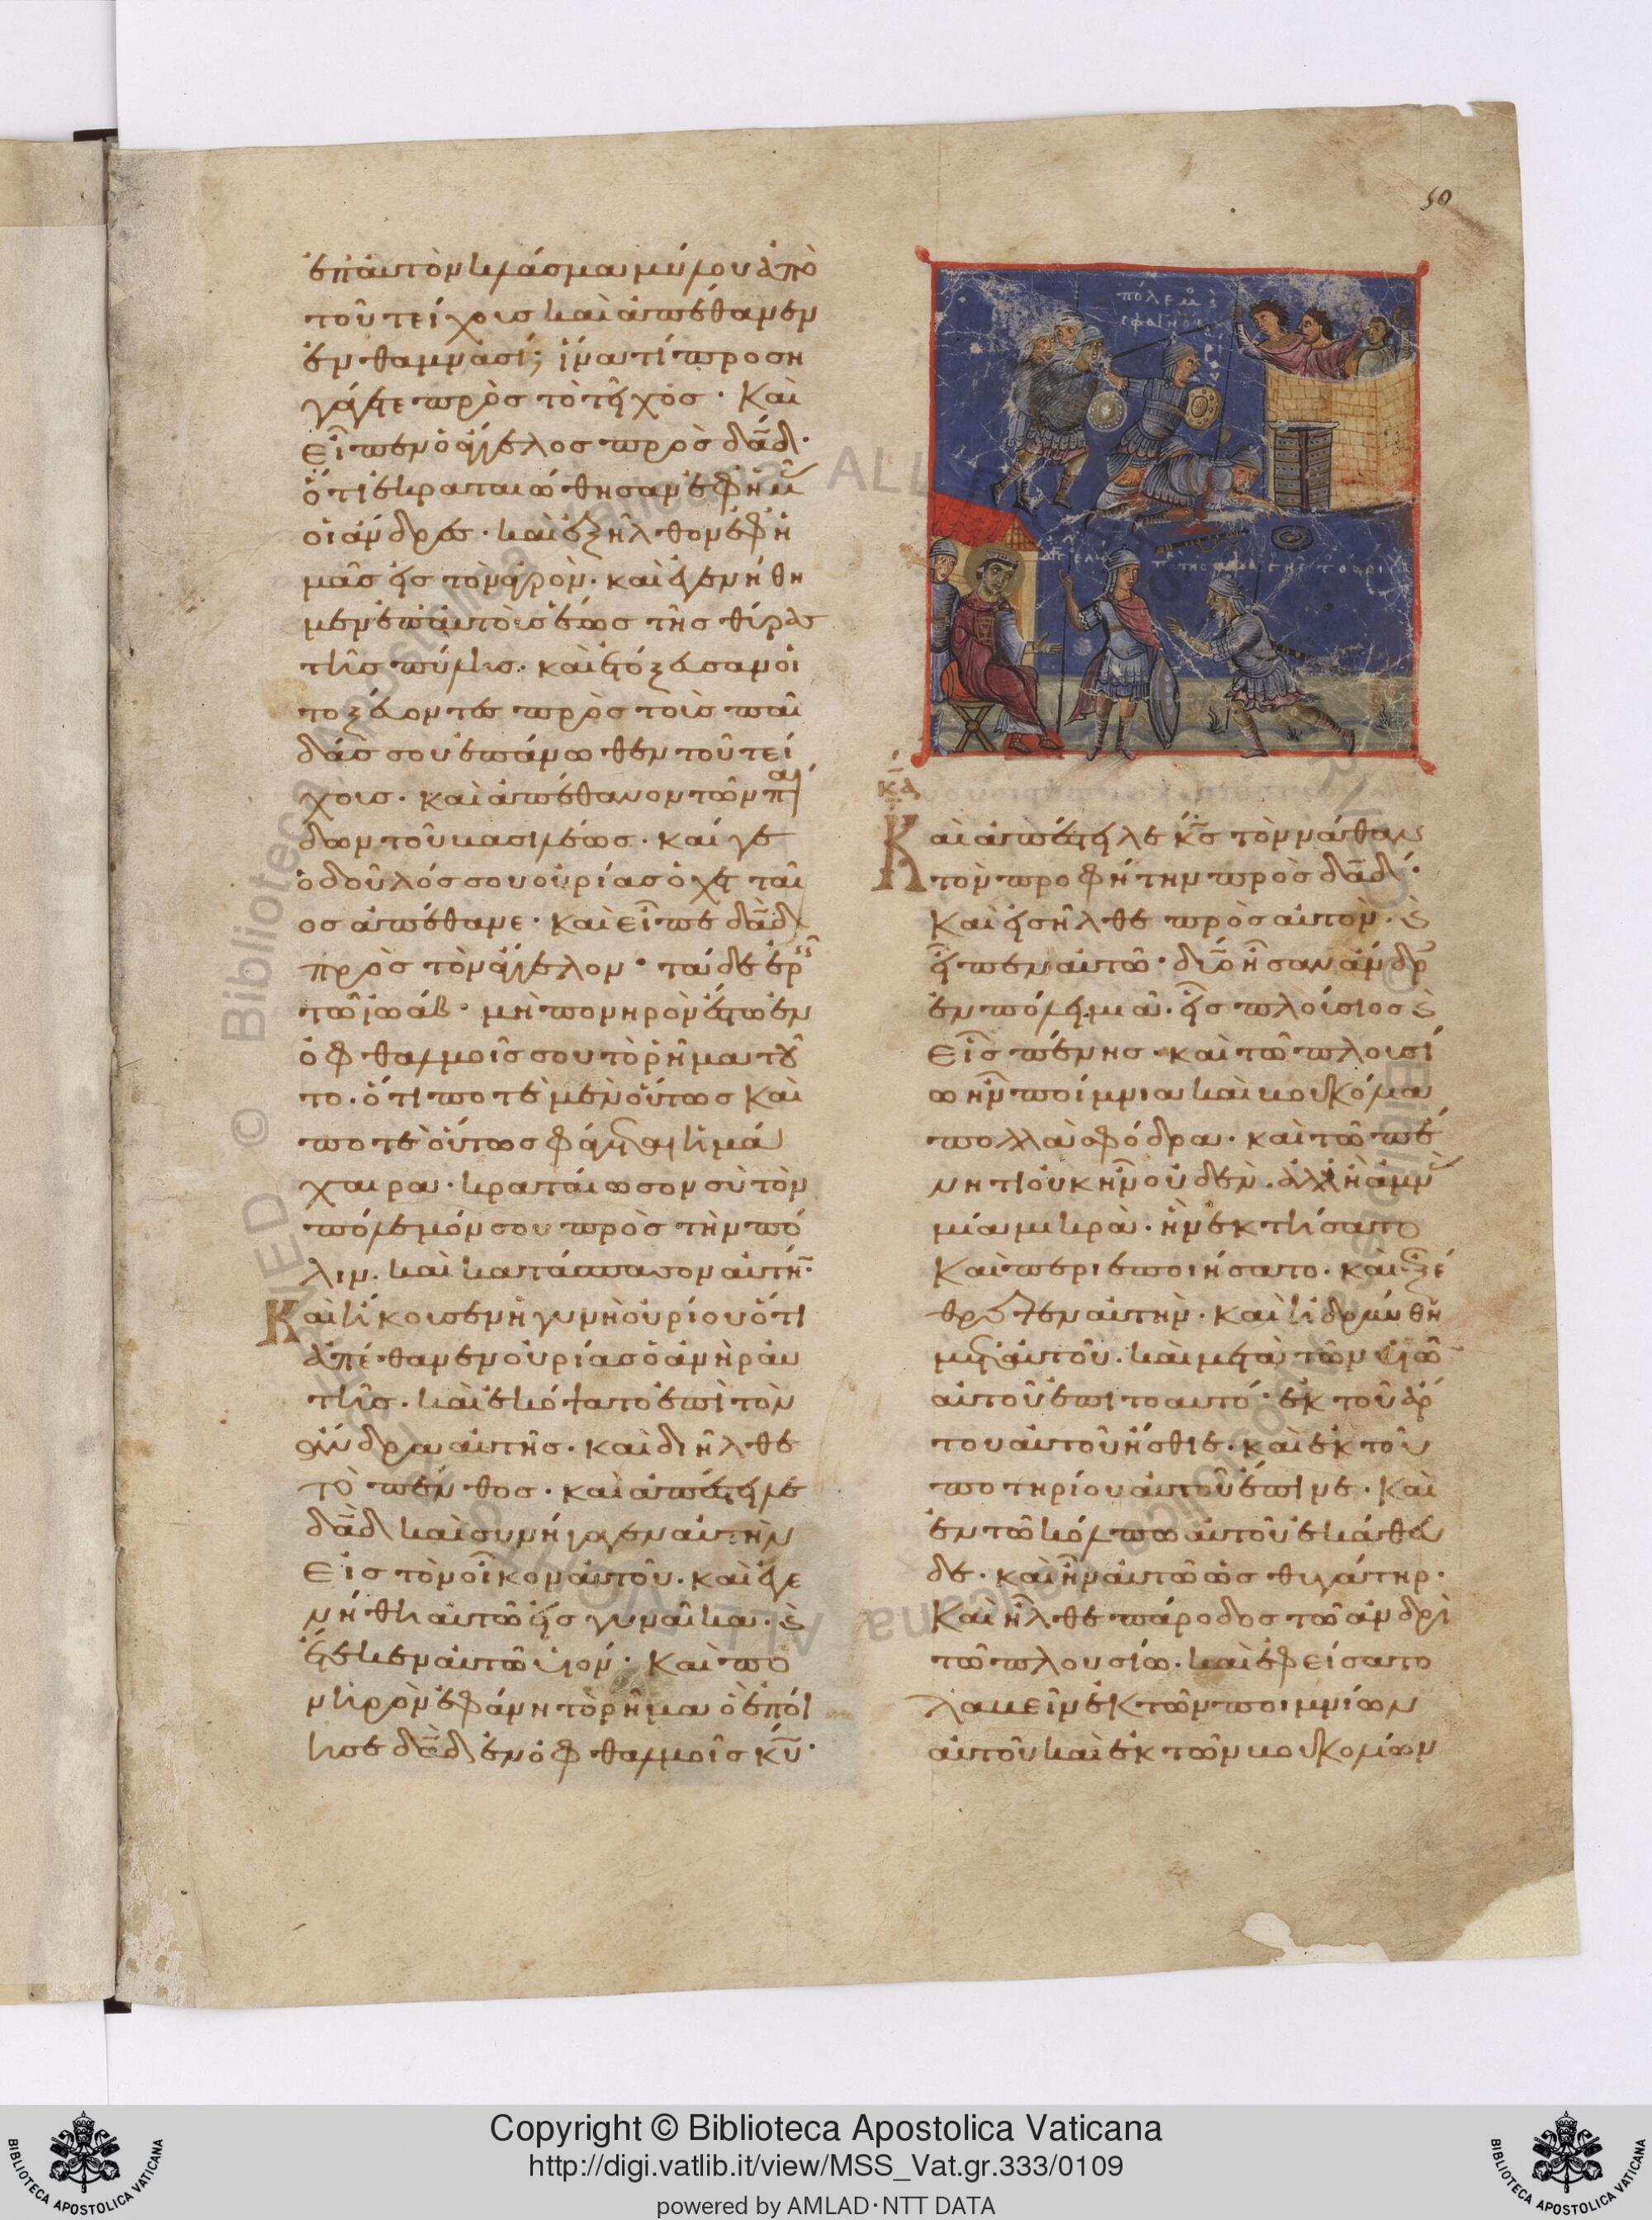 50
ἐπ' αὐτὸν κλάσμα μύλου ἀπὸ
τοῦ τείχους καὶ ἀπέθανεν
ἐν θαμνασί; ἱνατί προση
γάγετε πρὸς τὸ τεῖχος· Καὶ
εἶπεν ὁ ἄγγελος πρὸς δᾱδ·
ὅτι ἐκραταιώθησαν ἐφ' ἡμᾶς
οἱ ἄνδρες· καὶ ἐξῆλθον ἐφ' ἡ
μᾶς εἰς τὸν ἀγρὸν· καὶ ἐγενήθη
μεν ἐπ' αὐτοὺς ἕως τῆς θύρας
τῆς πύλης· καὶ ἐτόξευσαν οἱ
τοξεύοντες πρὸς τοὺς παῖ
δάς σου ἐπάνωθεν τοῦ τεί
χους· καὶ ἀπέθανον τῶν παί
δων τοῦ βασιλέως· καί γε
ὁ δοῦλός σου οὐρίας ὁ χετταῖ
ος ἀπέθανε· καὶ εἶπε δᾱδ
πρὸς τὸν ἄγγελον· τάδε ἐρεῖς
τῶ ἰωάβ· μὴ πονηρὸν ἔστω ἐν
ὀφθαλμοῖς σου τὸ ῥῆμα τοῦ
το· ὅτι ποτὲ μὲν οὕτως καὶ
ποτὲ οὕτως φάγεται ἡ μά
χαιρα· κραταίωσον σὺ τὸν
πόλεμόν σου πρὸς τὴν πό
λιν· καὶ κατάσπασον αὐτήν·
Καὶ ἤκουσεν ἡ γυνὴ οὐρίου ὅτι
ἀπέθανεν οὐρίας ὁ ἀνὴρ αὐ
τῆς· καὶ ἐκόψατο ἐπὶ τὸν
ἄνδρα αὐτῆς· καὶ διῆλθε
τὸ πένθος· καὶ ἀπέστειλε
δᾱδ καὶ συνήγαγεν αὐτὴν
εἰς τὸν οἶκον αὐτοῦ· καὶ ἐγε
νήθη αὐτῶ εἰς γυναῖκα· καὶ
ἔτεκεν αὐτῶ υἱόν· Καὶ πο
νηρὸν ἐφάνη τὸ ῥῆμα ὃ ἐποί
ησε δᾱδ ἐν ὀφθαλμοῖς κῡ·
κᾱ
Καὶ ἀπέστειλε κ̄ς τὸν νάθαν
τὸν προφήτην πρὸς δᾱδ·
Καὶ εἰσῆλθε πρὸς αὐτὸν· καὶ
εἶπεν αὐτῶ· δύο ἦσαν ἄνδρες
ἐν πόλει μιᾶ· εἷς πλούσιος καὶ
εἷς πένης· καὶ τῶ πλουσί
ω ἦν ποίμνια καὶ βουκόλια
πολλὰ σφόδρα· καὶ τῶ πέ
νητι οὐκ ἦν οὐδὲν· ἀλλ' ἢ ἀμνὰς
μία μικρὰ· ἣν ἐκτήσατο
Καὶ περιεποιήσατο· καὶ ἐξέ
θρεψεν αὐτὴν· καὶ ἡδρύνθη
μετ' αὐτοῦ· καὶ μετὰ τῶν υἱῶν
αὐτοῦ ἐπιτοαυτό· ἐκ τοῦ ἄρ
του αὐτοῦ ἤσθιε· καὶ ἐκ τοῦ
ποτηρίου αὐτοῦ ἔπινε· Καὶ
ἐν τῶ κόλπω αὐτοῦ ἐκάθευ
δε· καὶ ἦν αὐτῶ ὡς θυγάτηρ·
Καὶ ἦλθε πάροδος τῶ ἀνδρὶ
τῶ πλουσίω· καὶ ἐφείσατο
λαβεῖν ἐκ τῶν ποιμνίων
αὐτοῦ καὶ ἐκ τῶν βουκολίων
Copyright © Biblioteca Apostolica Vaticana
http://digi.vatlib.it/view/MSS_Vat.gr.333/0109
powered by AMLAD·NTT DATA
BIBLIOTECA APOSTOLICA VATICANA
BIBLIOTECA APOSTOLICA VATICANA